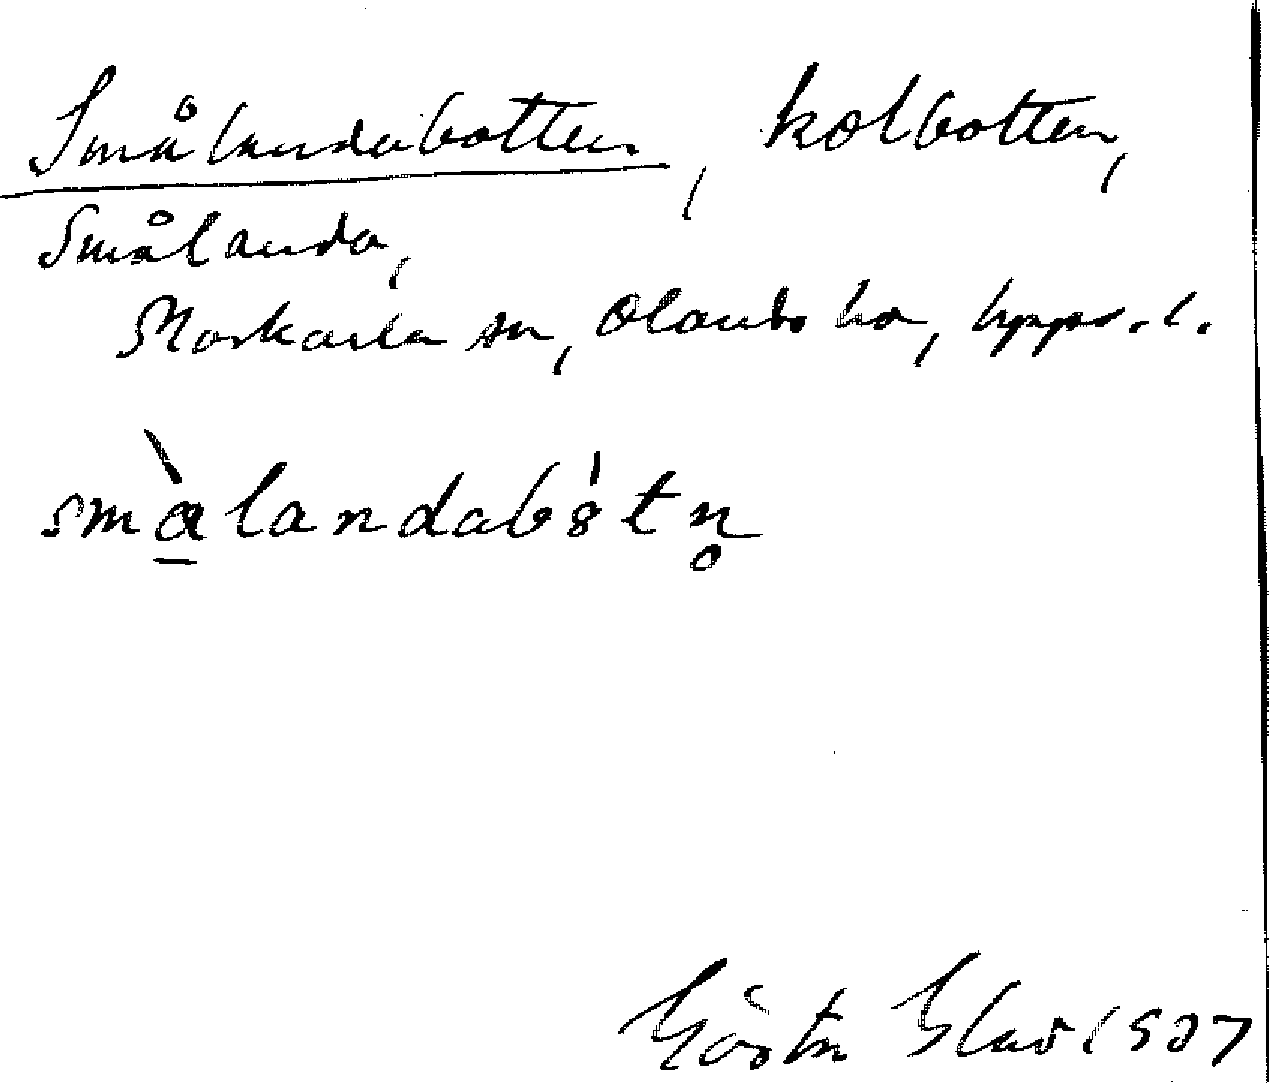 Smålandabotten, kolbotten,
Smålanda,
Morkarla sn, Olands hd, Upps. l.
småʟandabòtn̥
Gösta 1907